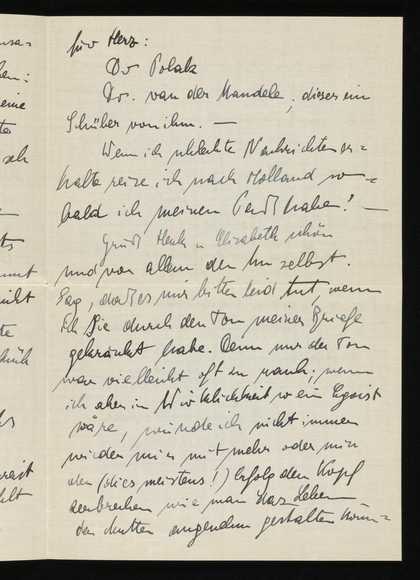 für Herz:
Dr Polak
Dr. van der Mandele, dieser ein
Schüler von ihm. —
Wenn ich schlechte Nachrichten er=
halte reise ich nach Holland so=
bald ich meinen habe! —
Grüß Henk u Elizabeth schön
und vor allem selbst.
Sag, daß es mir bitter leid tut, wenn
ich Sie durch den Ton meiner Briefe
gekränkt habe. Denn nur der Ton
war vielleicht oft zu rauh; wenn
ich aber in Wirklichkeit so ein Egoist
wäre, würde ich nicht immer
wieder mir mit mehr oder min
der (dies meistens!) Erfolg den Kopf
zerbrechen wie man das Leben
der Mutter angenehm gestalten könn=